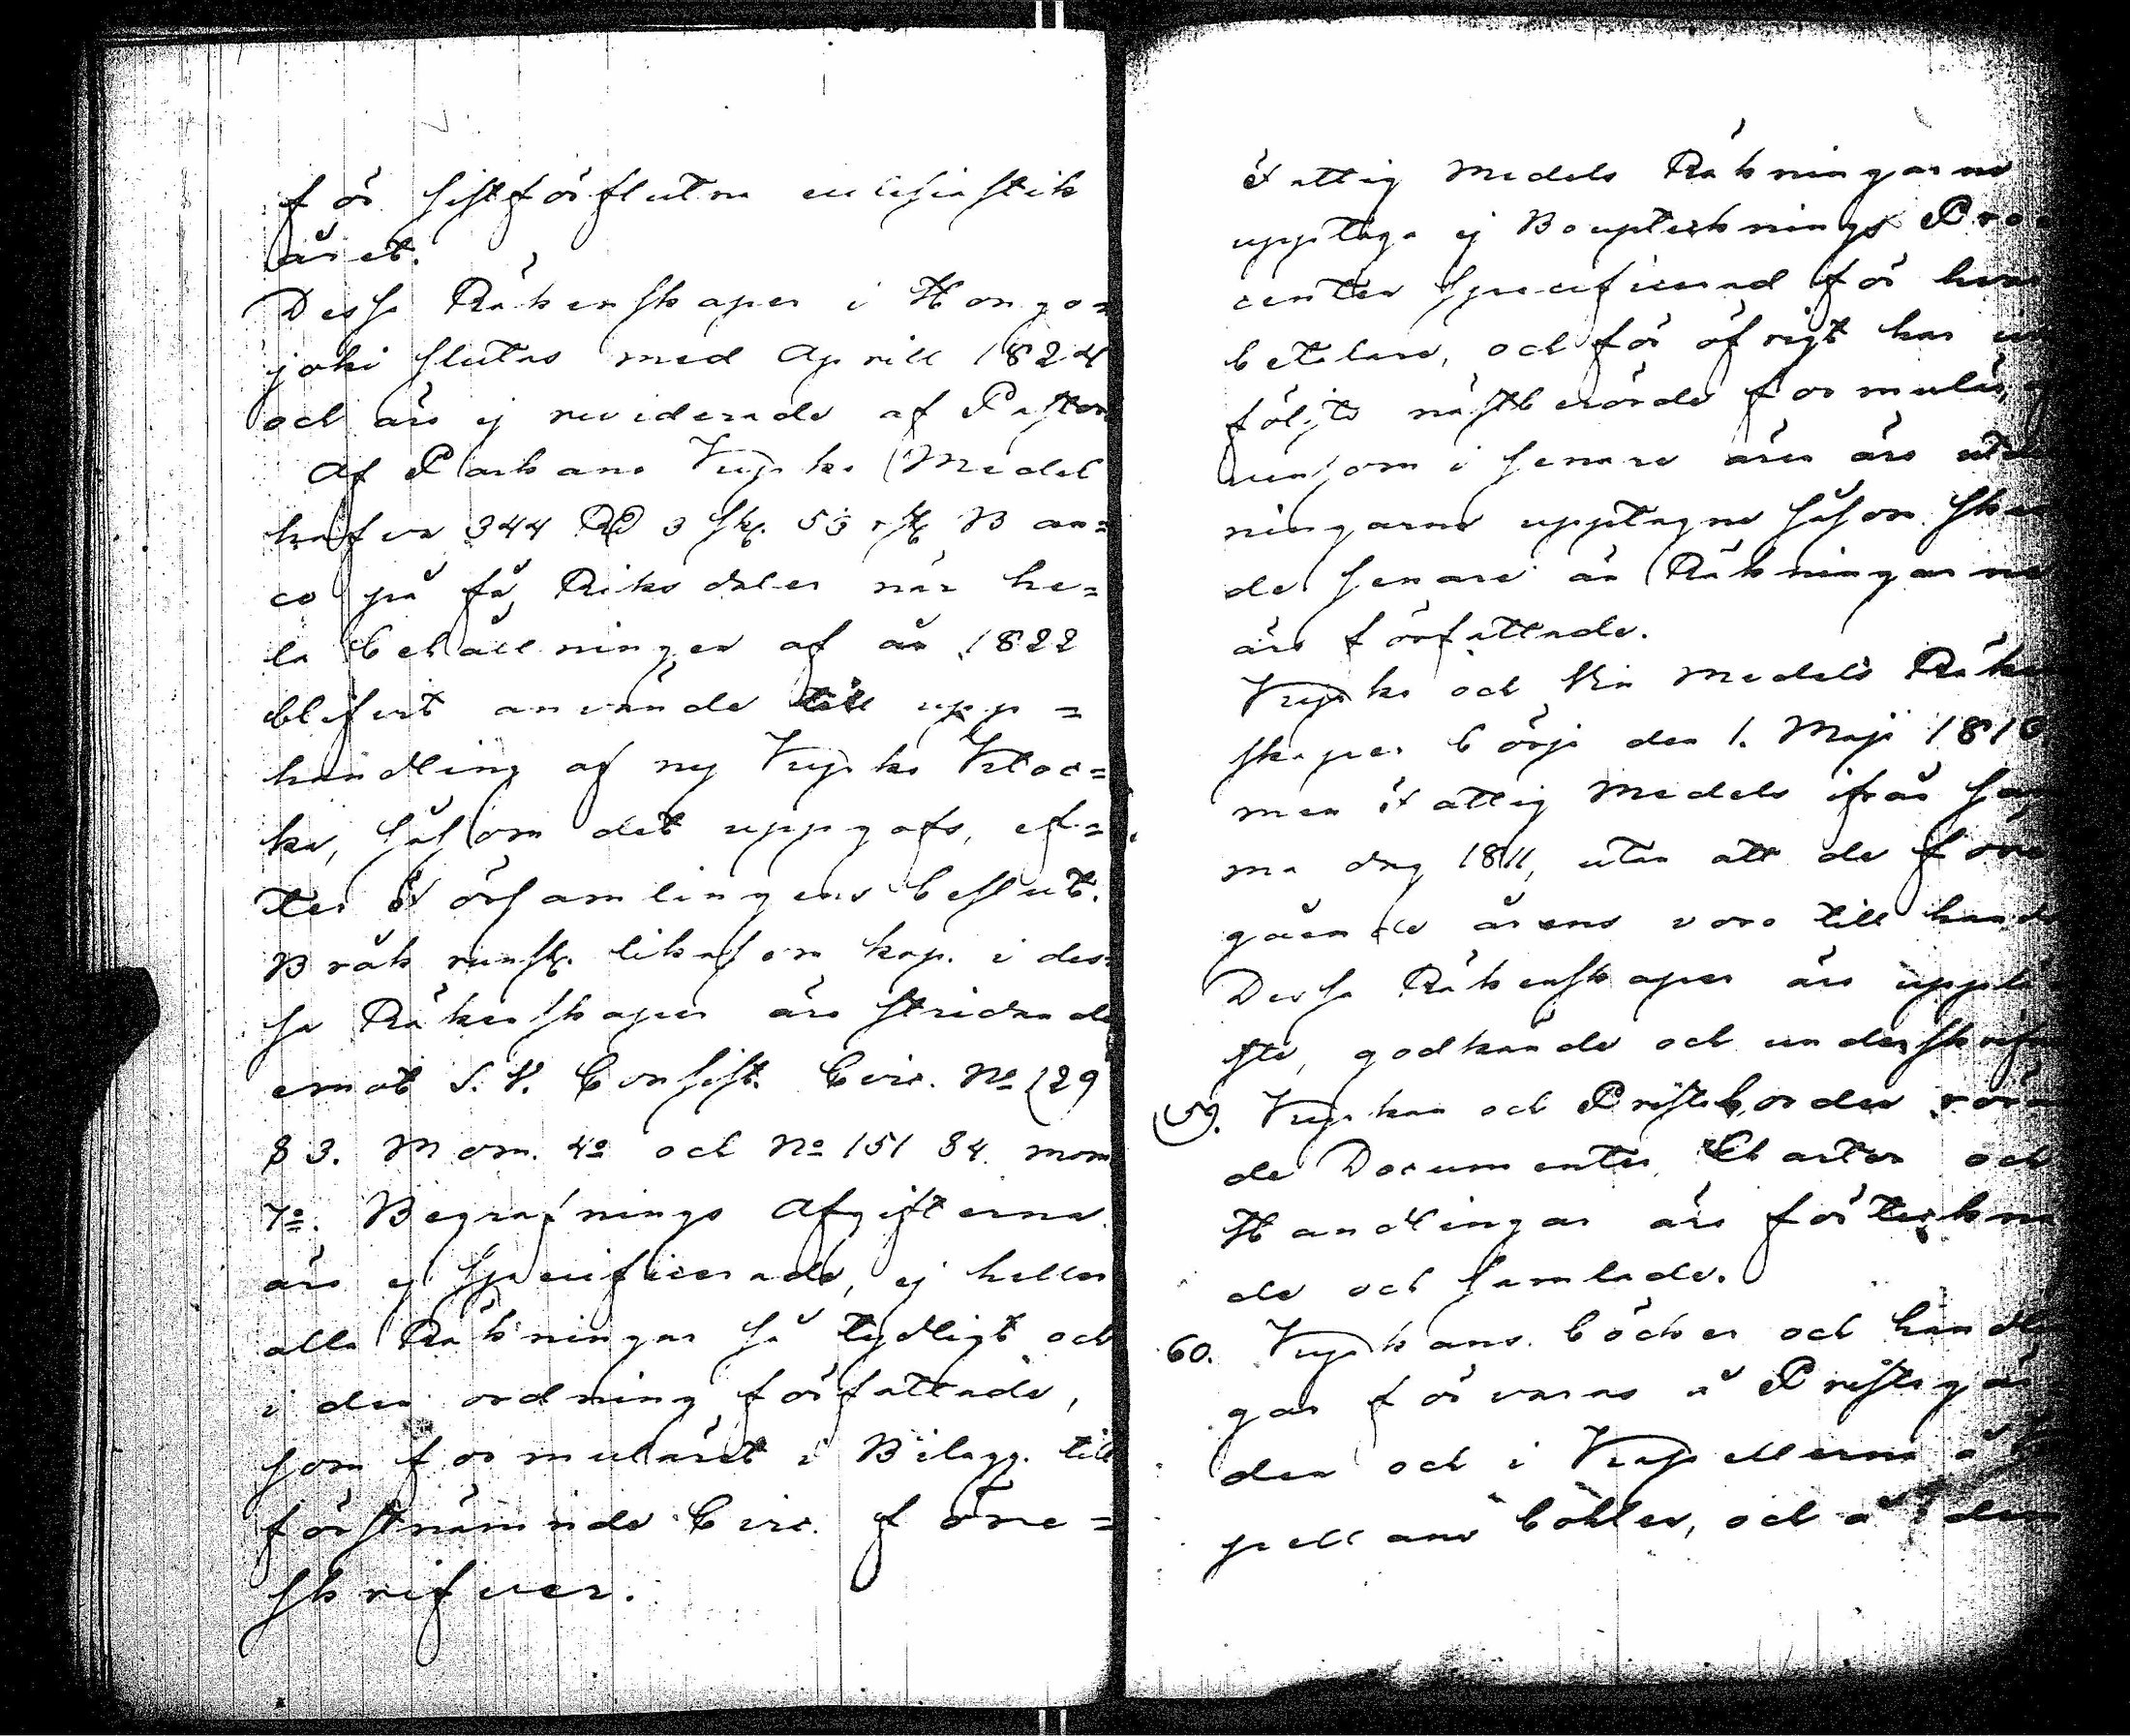 för sistförflutna ecclesiastik
året.
Dessa Räkenskaper i Hongo=
joki slutas med April 1824
och äro ej reviderade af Pastor
Af Parkano Kyrko Medel
hafva 344 RD 3 sk. 5 3 rst. Ban=
co på få Riksdaler när he=
la behållningen af år 1822
blifvit använde till upp=
handling af ny Kyrko Kloc=
ka, såsom det uppgafs, ef=
ter Församlingens beslut.
Bråk runst. likasom kop. i des=
sa Räkenskaper äro stridande
emot S. V. Consist. Circ. No 129
§ 3. Mom. 4o och No 151 § 4. mom
7o. Begrafnings Afgifterna
äro ej specificerade, ej heller
alla Räkningar så tydligt och
i den ordning författade,
som formuläret i Bilagg. till
förstnämnde Circ. före=
skrifver.
Fattig Medels Räkningarne
upptaga ej Boupteknings Pro
center specificerad för hvar
betalare, och för öfrigt har
följts nästberörde formulär,
som i senare åren äro
ningarne upptagne såsom
de senare än Räkningarne
äro författade.
Kyrko och Vin Medels Räken
skaper börja den 1. Maji 1816
men Fattig Medels ifrån sam
ma dag 1811, utan att de före
gående årens voro till hands
Dessa Räkenskaper äro upplä
ste, godkände och underskrifne
59. Kyrkan och Prästeborden röran
de Documenter, Chartor och
Handlingar äro förtekna
de och samlade.
60. Kyrkans böcker och handlin
gar förvaras å Prästegår
den och i Kapellerna å
pellans bohlen, och å den